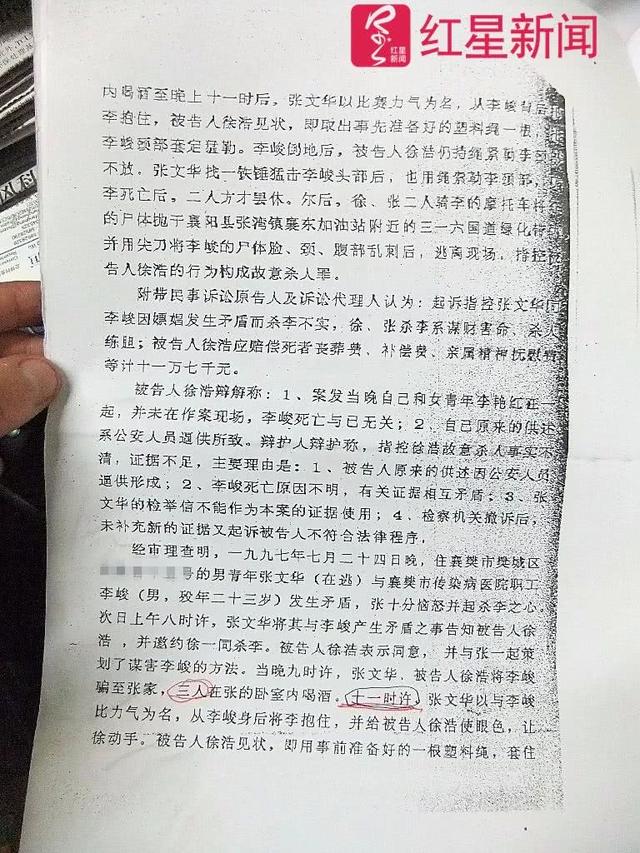 红星新闻
红星
新闻
内喝酒至晚上十一时后，张文华以比赛力气为名，从李峻背后
李抱住，被告人徐浩见状，即取出事先准备好的塑料绳一根，
李峻颈部套定猛勒。李峻倒地后，被告人徐浩仍持绳紧勒李
不放。张文华找一铁锤猛击李峻头部后，也用绳索勒李颈部，
李死亡后，二人方才罢休。尔后，徐、张二人骑李的摩托车将
的尸体抛于襄阳县张湾镇襄东加油站附近的三一六国道绿化带
并用尖刀将李峻的尸体脸、颈、腹部乱刺后，逃离现场。指控
告人徐浩的行为构成故意杀人罪。
附带民事诉讼原告人及诉讼代理人认为：起诉指控张文华
李峻因嫖娼发生矛盾而杀李不实，徐、张杀李系谋财害命、杀人
练胆；被告人徐浩应赔偿死者丧葬费、补偿费、亲属精神抚慰
等计十一万七千元。
被告人徐浩辩解称：1、案发当晚自己和女青年李艳红在一
起，并未在作案现场，李峻死亡与已无关；2、自己原来的供述
系公安人员逼供所致。辩护人辩护称，指控徐浩故意杀人事实不
清，证据不足，主要理由是：1、被告人原来的供述因公安人员
逼供形成；2、李峻死亡原因不明，有关证据相互矛盾；3、张
文华的检举信不能作为本案的证据使用；4、检察机关撤诉后，
未补充新的证据又起诉被告人不符合法律程序。
经审理查明，一九九七年七月二十四日晚，住襄樊市樊城区
号的男青年张文华（在逃）与襄樊市传染病医院职工
李峻（男，殁年二十三岁）发生矛盾，张十分恼怒并起杀李之心。
次日上午八时许，张文华将其与李峻产生矛盾之事告知被告人徐
浩，并邀约徐一同杀李。被告人徐浩表示同意，并与张一起策
划了谋害李峻的方法。当晚九时许，张文华、被告人徐浩将李峻
骗至张家，三人在张的卧室内喝酒。十一时许，张文华以与李峻
比力气为名，从李峻身后将李抱住，并给被告人徐浩使眼色，让
徐动手。被告人徐浩见状，即用事前准备好的一根塑料绳，套住